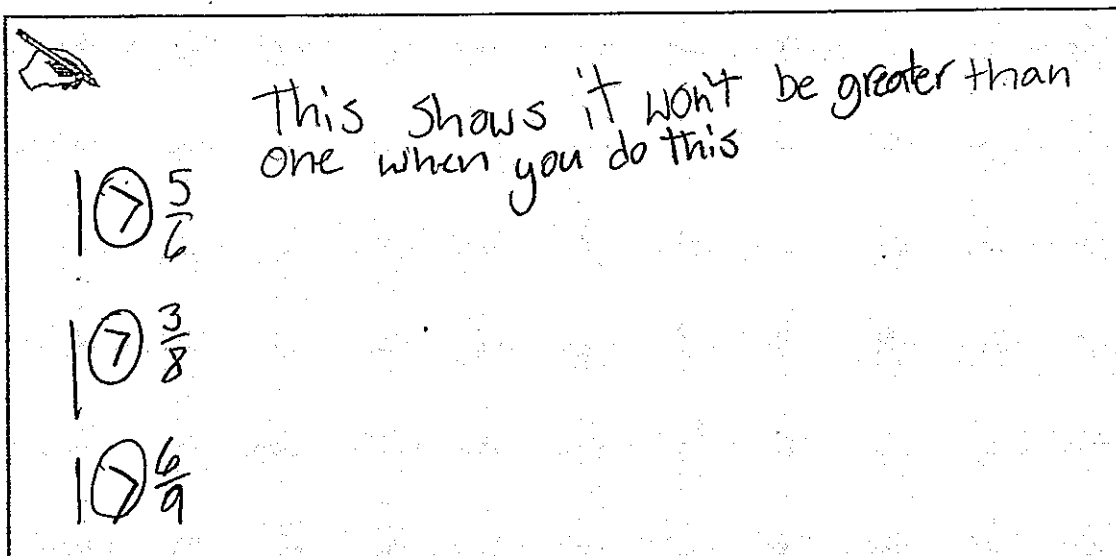 This shows it won't be greater than
one when you do this
1 > 5/6
1 > 3/8
1 > 6/9